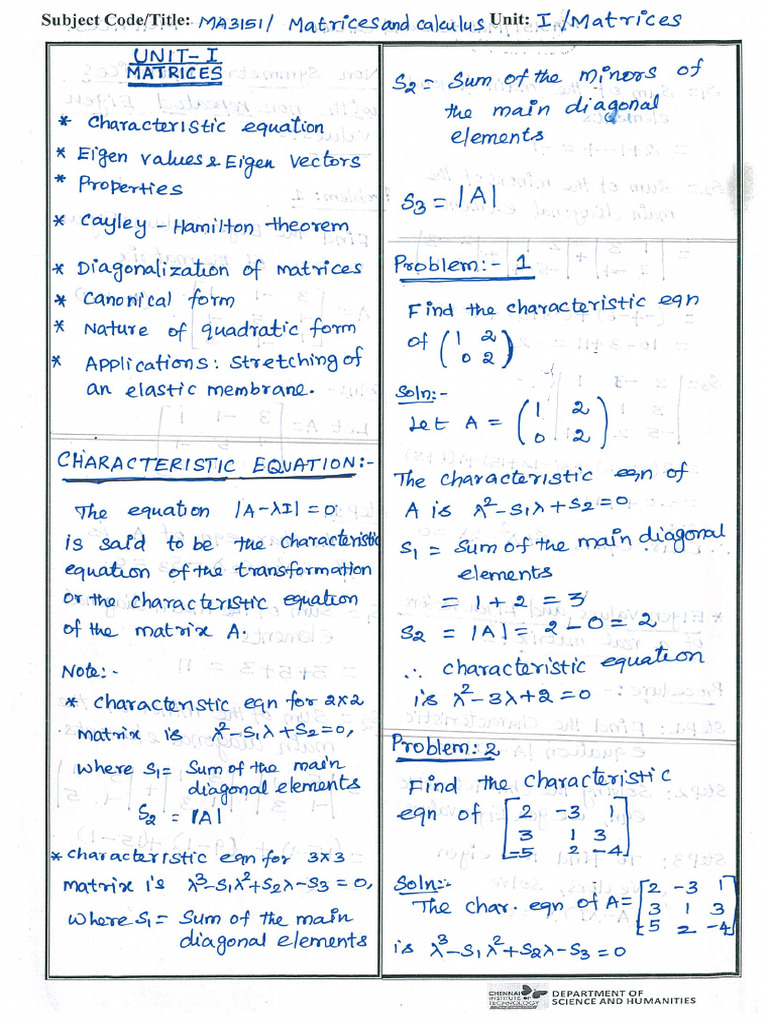 Subject Code/Title: MA3151/ Matrices and calculus Unit: I /Matrices
UNIT-I
MATRICES
* Characteristic equation
* Eigen values & Eigen vectors
* Properties
* Cayley - Hamilton theorem
* Diagonalization of matrices
* Canonical form
* Nature of quadratic form
* Applications: Stretching of
an elastic membrane.
CHARACTERISTIC EQUATION:-
The equation |A-λI|=0
is said to be the characteristic
equation of the transformation
or the characteristic equation
of the matrix A.
Note:-
* characteristic eqn for 2x2
matrix is λ²-S₁λ+S₂=0,
where S₁= Sum of the main
diagonal elements
S₂ = |A|
* characteristic eqn for 3x3
matrix is λ³-S₁λ²+S₂λ-S₃=0,
where S₁= Sum of the main
diagonal elements
S₂ = Sum of the minors of
the main diagonal
elements
S₃ = |A|
Problem:- 1
Find the characteristic eqn
of (1 2
0 2)
Soln:-
Let A = (1 2
0 2)
The characteristic eqn of
A is λ²-S₁λ+S₂=0
S₁ = Sum of the main diagonal
elements
= 1+2 = 3
S₂ = |A| = 2-0 = 2
∴ characteristic equation
is λ²-3λ+2=0
Problem: 2
Find the characteristic
eqn of [2 -3 1
3 1 3
-5 2 -4]
Soln:-
The char. eqn of A=[2 -3 1
3 1 3
-5 2 -4]
is λ³-S₁λ²+S₂λ-S₃=0
CHENNAI
INSTITUTE OF
TECHNOLOGY
DEPARTMENT OF
SCIENCE AND HUMANITIES